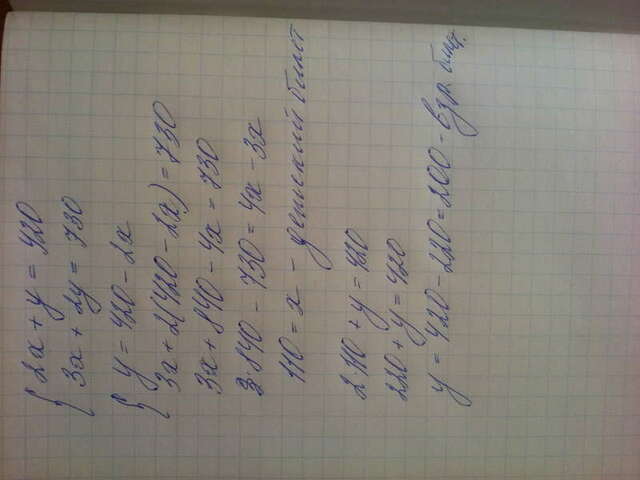 2x + y = 420
3x + 2y = 730
y = 420 - 2x
3x + 2(420 - 2x) = 730
3x + 840 - 4x = 730
840 - 730 = 4x - 3x
110 = x - детский билет
2·110 + y = 420
220 + y = 420
y = 420 - 220 = 200 - взр. билет.